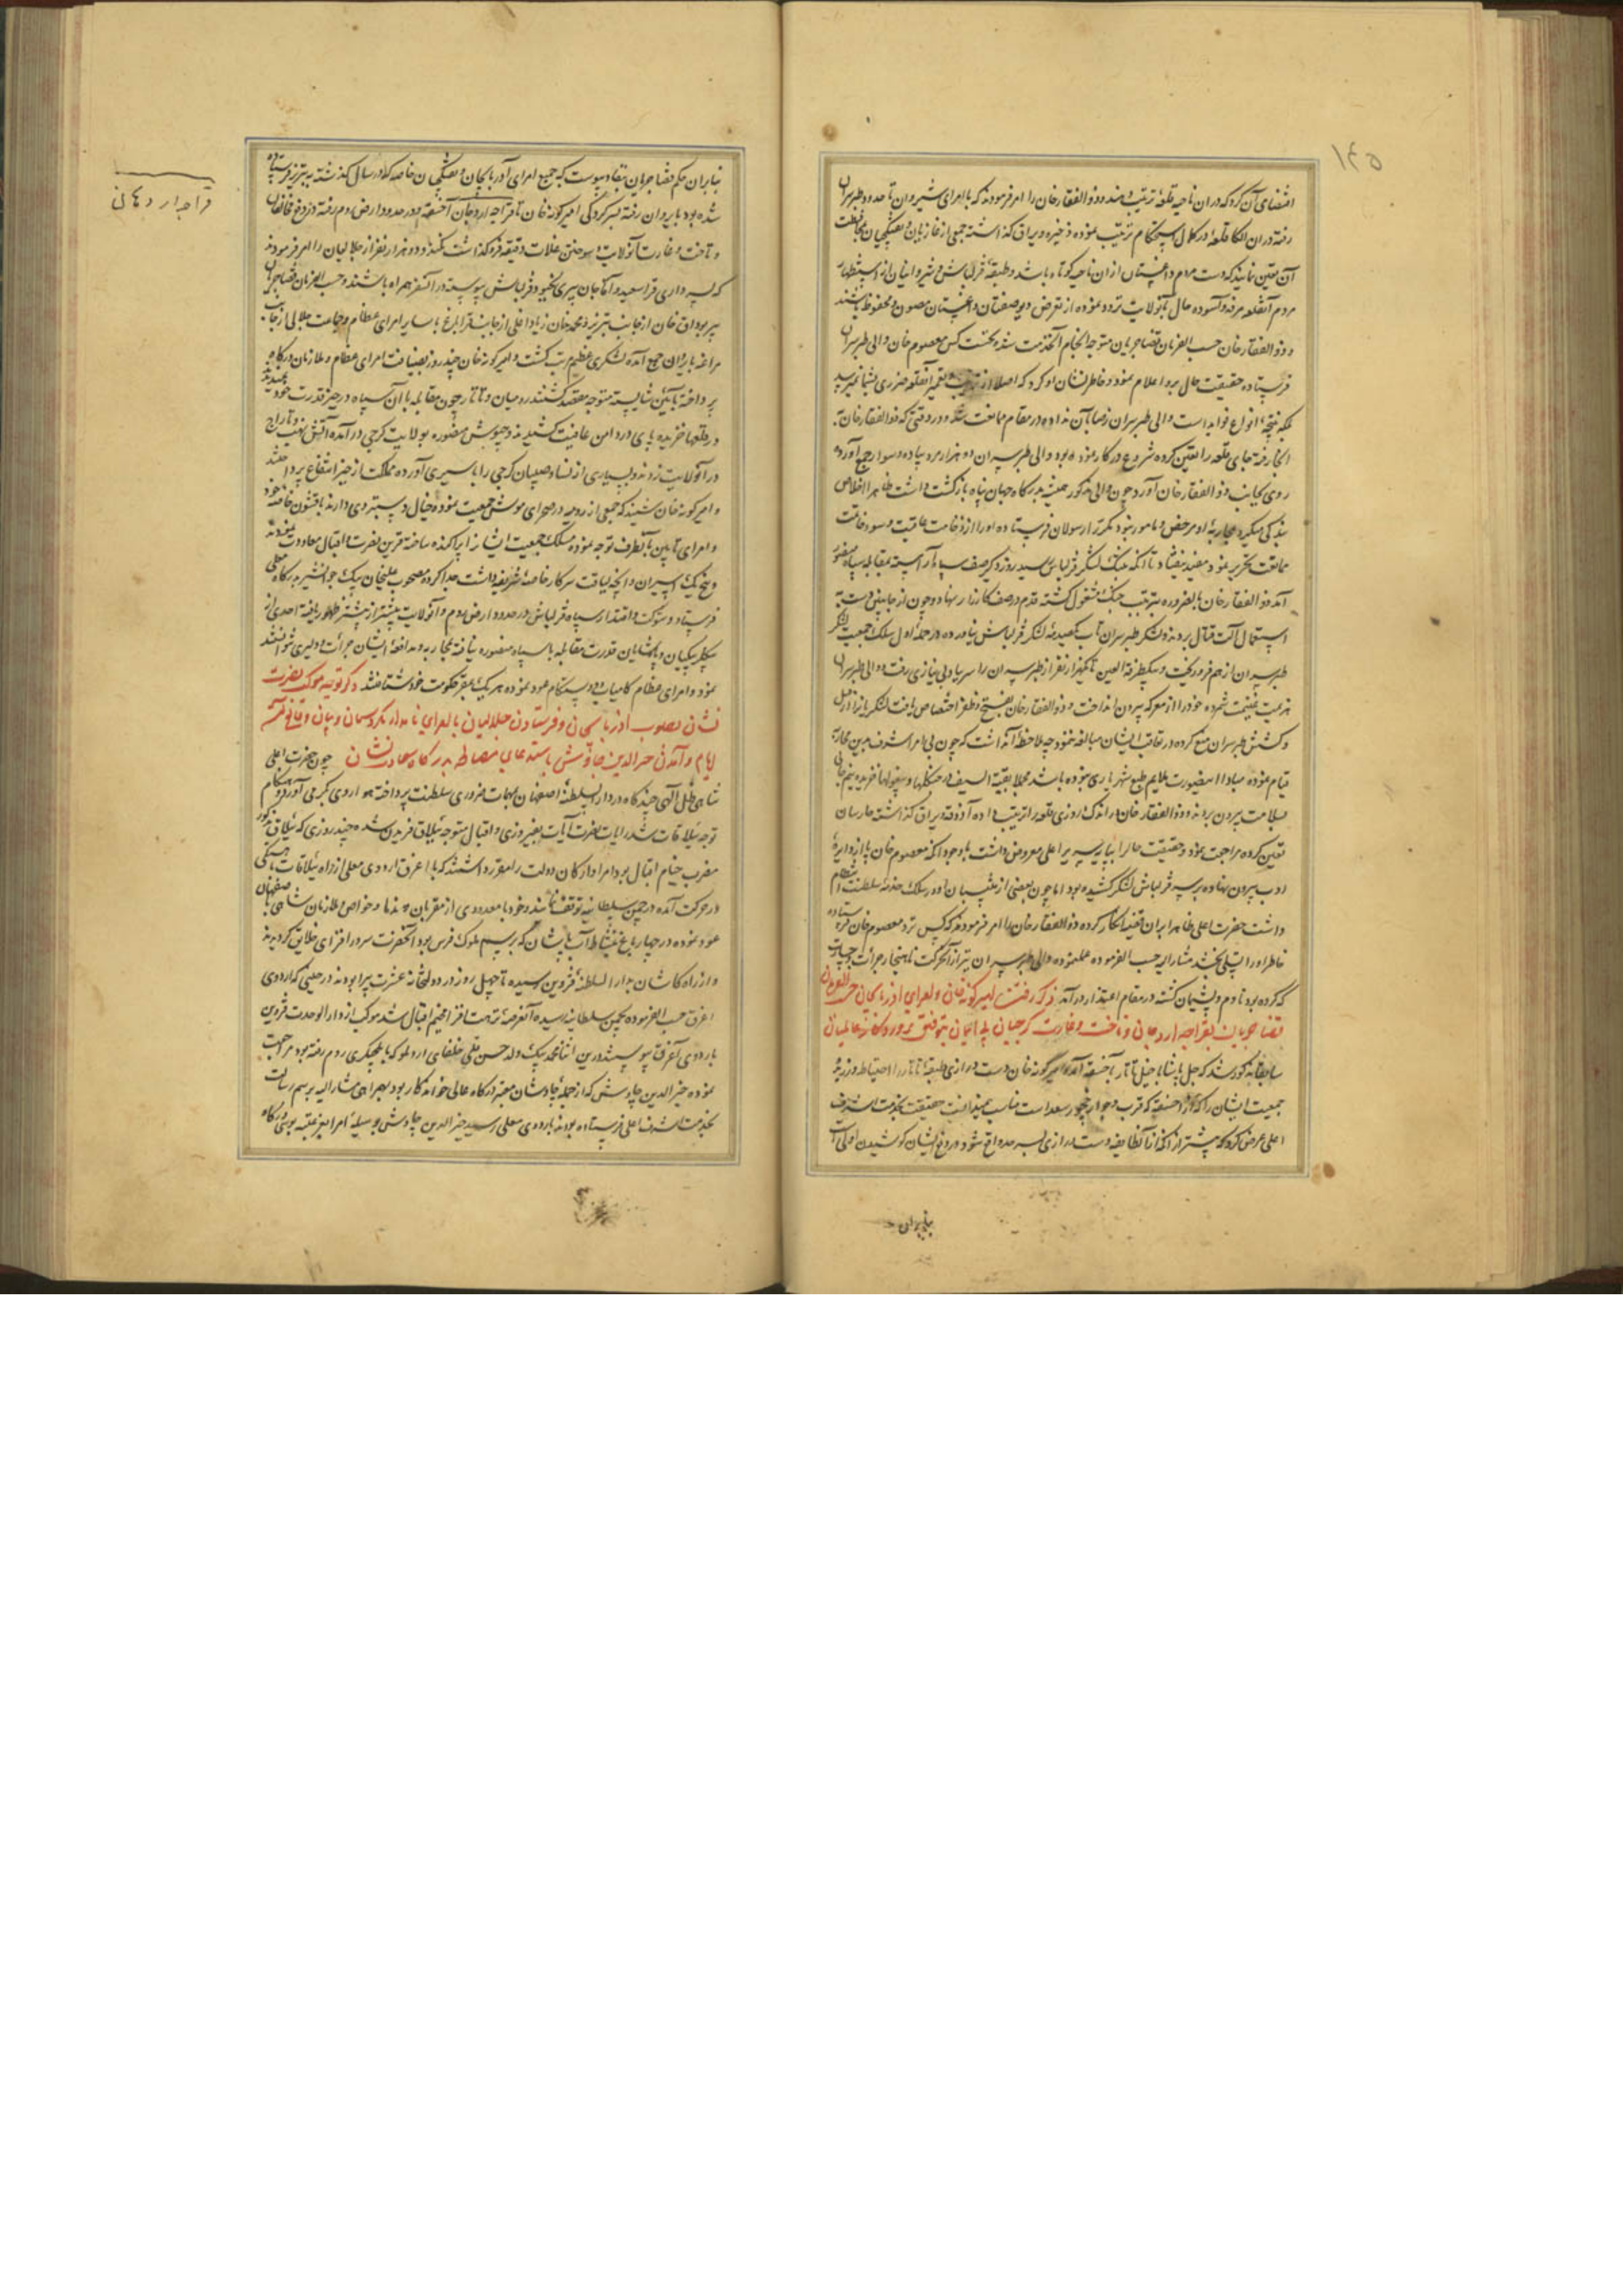 ۱۴۵
اقتضای آن کرد که در ان ناحیه قلعهٔ ترتیب دهند و ذو الفقار خان را امر فرمودند که با امرای شیروان تا حدود طبرسران
رفته در ان الکا قلعهٔ در کمال استحکام ترتیب نموده ذخیره و یراق گذاشته جمعی از غازیان و تفنگچیان بمحافظت
آن تعین نمایند که دست مردم داغستان از ان ناحیه کوتاه باشد و طبقهٔ قزلباش و شیروانیان از استظهار
مردم آنقلعه مرفه و آسوده حال بآنولایت تردد نموده از تعرض دیو صفتان داغستان مصون و محفوظ باشند
و ذو الفقار خان حسب الفرمان قضا جریان متوجه انجام آنخدمت شده نخست کس بمعصوم خان والی طبرسران
فرستاده حقیقت حال برو اعلام نمود و خاطر نشان او کرد که اصلا از ترتیب و تعمیر آنقلعه ضرری بشما نمیرسد
بلکه نتیجه انواع فواید است والی طبرسران رضا بآن نداده در مقام ممانعت شد و در وقتی که ذو الفقار خان
انجا رفته جای قلعه را تعین کرده شروع در کار نموده بود والی طبرسران دو هزار مرد پیاده و سوار جمع آورده
روی بجانب ذو الفقار خان آورد چون والی مذکور همیشه بدرگاه جهان پناه بازگشت داشت ظاهرا اخلاص
بندگی میکرد بمحاربهٔ او مرخص و مامور نبود مکرر رسولان فرستاده او را از وخامت عاقبت و سوء خاتمت
ممانعت تحذیر نمود مفید نیفتاد تا آنکه بجنگ لشکر قزلباش رسید روزدیگر صف سپاه آراسته بمقابله سپاه منصور
آمد ذو الفقار خان بالضروره بترتیب جنگ مشغول گشته قدم در صف کارزار نهاد و چون از جانبین دست به
استعمال آلت قتال بردند و لشکر طبرسران تاب صدمهٔ لشکر قزلباش نیاورده در حملهٔ اول سلک جمعیت لشکر
طبرسران از هم فرو ریخت و بیکطرفة العین تا یکهزار نفر از طبرسران را سر بباد بی نیازی رفت و والی طبرسران
هزیمت غنیمت شمرده خود را از معرکه بیرون انداخت و ذو الفقار خان بفتح و ظفر اختصاص یافت لشکریانرا از قتل
و کشش طبرسران منع کرده در تعاقب ایشان مبالغه ننمود چه ملاحظه آن داشت که چون بی امر اشرف بدین محاربه
قیام نموده مبادا اینصورت ملایم طبع شهریاری نبوده باشد مجملا بقیة السیف در جنگلها و بیغولها خزیده نیم جانی
بسلامت بیرون بردند و ذو الفقار خان در اندک روزی قلعه را ترتیب داده آذوقه و یراق گذاشته حارسان
تعین کرده مراجعت نمود و حقیقت حال را بپایهٔ سریر اعلی معروض داشت باوجود انکه معصوم خان پا از دایرهٔ
ادب بیرون نهاده بر سر قزلباش لشکر کشیده بود اما چون بعضی از منتسبان او در سلک خدمه سلطنت انتظام
داشت حضرت اعلی ظاهرا بران قضیه انکار کرده ذو الفقار خان را امر فرمودند که کس نزد معصوم خان فرستاده
خاطر او را تسلی بخشد مشارالیه حسب الفرموده عمل نموده والی طبرسران نیز از آن حرکت ناهنجار جرأت و جسارت
که کرده بود نادم و پشیمان گشته در مقام اعتذار در آمد ذکر رفتن امیر کونه خان و امرای آذربایجان حسب الفرمان
قضا جریان بقراجه اردهان و تاخت و غارت گرجیان بی ایمان بتوفیق پروردکار عالمیان
سابقا مذکور شد که جمل پاشا با خیل تاتار بآخسقه آمده امیر گونه خان دست درازی طبقهٔ تاتار را احتیاط ورزیده
جمعیت ایشان را که در آخسقه که قرب و جوار چخور سعد است مناسب نمیدانست حقیقت بخدمت اشرف
اعلی عرض کرد که پیشتر از انکه از آنطایفه دست درازی بسرحد واقع شود در دفع ایشان کوشیدن اولی است
بنابران
بنابران حکم قضا جریان بنفاذ پیوست که جمیع امرای آذربایجان و تفنگچیان خاصه که در سال گذشته به تبریز فرستاده
شده بود بایروان رفته بسرکردگی امیر کونه خان تا قراجه اردهان آخسقه و در حدود ارض روم رفته در دفع مخالفان
و تاخت و غارت آنولایت و سوختن غلات دقیقه فرو گذاشت نکنند و دو هزار نفر از جلالیان را امر فرمودند
که بسرداری قرا سعید و آقا جان پیری بجنود قزلباش پیوسته در آنسفر همراه باشند و حسب الفرمان قضا جریان
پیر بوداق خان از جانب تبریز و محمد خان زیاد اغلی از جانب قراباغ با سایر امرای عظام و جماعت جلالی از جانب
مراغه بایروان جمع آمده لشکری عظیم ترتیب گشت و امیر کونه خان چند روز بضیافت امرای عظام و ملازمان درگاه
پرداخته بآئین شایسته متوجه مقصد گشتند رومیان و تاتار چون مقابله با آن سپاه در حیز قدرت خود ندیدند
در قلعها خزیده پای در دامن عافیت کشیدند و جیوش منصوره بولایت گرجی در آمده آتش نهب و تاراج
در آنولایت زدند و بسیاری از نسا و صبیان گرجی را باسیری آورده مملکت از حیز انتفاع پرداختند
و امیر کونه خان شنید که جمعی از رومیه در صحرای موش جمعیت نموده و خیال دستبردی دارند با قشون خاصه خود
و امرای تابین بآنطرف توجه نموده سلک جمعیت ایشانرا پراکنده ساخته قرین نصرت و اقبال معاودت نمودند
و پنج یک اسیران و آنچه لیاقت سرکار خاصهٔ شریفه داشت جدا کرده مصحوب علیخان بیک جوانشیر بدرگاه معلی
فرستاد و شوکت و اقتدار سپاه قزلباش در حدود ارض روم و آنولایت بیشتر از پیشتر ظهور یافته احدی از
بیکلر بیکیان و پاشایان قدرت مقابله با سپاه منصوره نیافته بمحاربه و مدافعه ایشان جرأت و دلیری نتوانستند
نمود و امرای عظام کامیاب و دوستکام عود نموده هر یک بمقر حکومت خود شتافتند ذکر توجه موکب نصرت
نشان بصوب آذربایجان و فرستادن جلالیان با امرای نامدار بکردستان و بیان وقایع آن
ایام و آمدن خیر الدین چاوش باستدعای مصالحه بدرگاه سعادت نشان چون حضرت اعلی
شاهی ظل الهی چند گاه در دار السلطنهٔ اصفهان بمهمات ضروری سلطنت پرداخته هوا روی بگرمی آورد و هنگام
توجه ییلاقات شد رایات نصرت آیات بفیروزی و اقبال متوجه ییلاق فریدن شده چند روزی که ییلاق مذکور
مضرب خیام اقبال بود امرا و ارکان دولت را مقرر داشتند که با اغرق اردوی معلی از راه ییلاقات بآهستگی
در حرکت آمده در چمن سلطانیه توقف نمایند و خود با معدودی از مقربان و ندما و خواص و ملازمان شاهی باصفهان
عود نموده در چهار باغ بنشاط آب پاشان که برسم ملوک فرس بود آنحضرت سرور افزای خلایق گردیدند
و از راه کاشان بدار السلطنهٔ قزوین رسیده تا چهل روز در دولتخانه عشرت پیرا بودند در حینی که اردوی
اغرق حسب الفرموده بچمن سلطانیه رسیده آنعرصه نزهت افزا مخیم اقبال شد موکب از دار الوحدت قزوین
باردوی اغرق پیوستند درین اثنا محمد بیک ولد حسن قلی خلفای اردلو که بایلچیگری روم رفته بود مراجعت
نموده خیر الدین چاوش که از جملهٔ چاوشان معتبر درگاه عالی خواندگار بود بهمراهی مشارالیه برسم رسالت
بخدمت اشرف اعلی فرستاده بودند باردوی معلی رسید خیر الدین چاوش بوسیلهٔ امرا بعز عتبه بوسی درگاه
قراجه اردهان